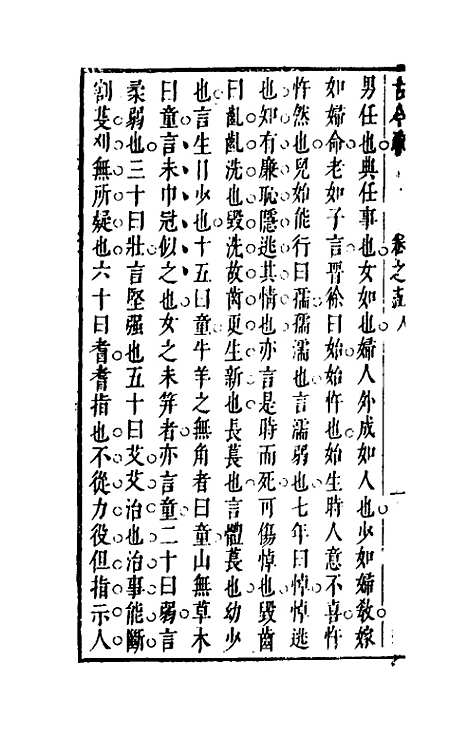 男任也典任事也女如也婦人外成如人也少如婦教嫁
如婦命老如子言靑徐曰始始忤也始生時人意不喜忤
忤然也兒始能行曰孺孺濡也言濡弱也七年曰悼悼逃
也知有廉恥隱逃其情也亦言是時而死可傷悼也毀齒
曰齔齔洗也毀洗故齒更生新也長萇也言體萇也幼少
也言生日少也十五曰童牛羊之無角者曰童山無草木
曰童言未巾冠似之也女之未筓者亦言童二十曰弱言
柔弱也三十曰壯言堅强也五十曰艾艾治也治事能斷
割芟刈無所疑也六十曰耆耆指也不從力役但指示人